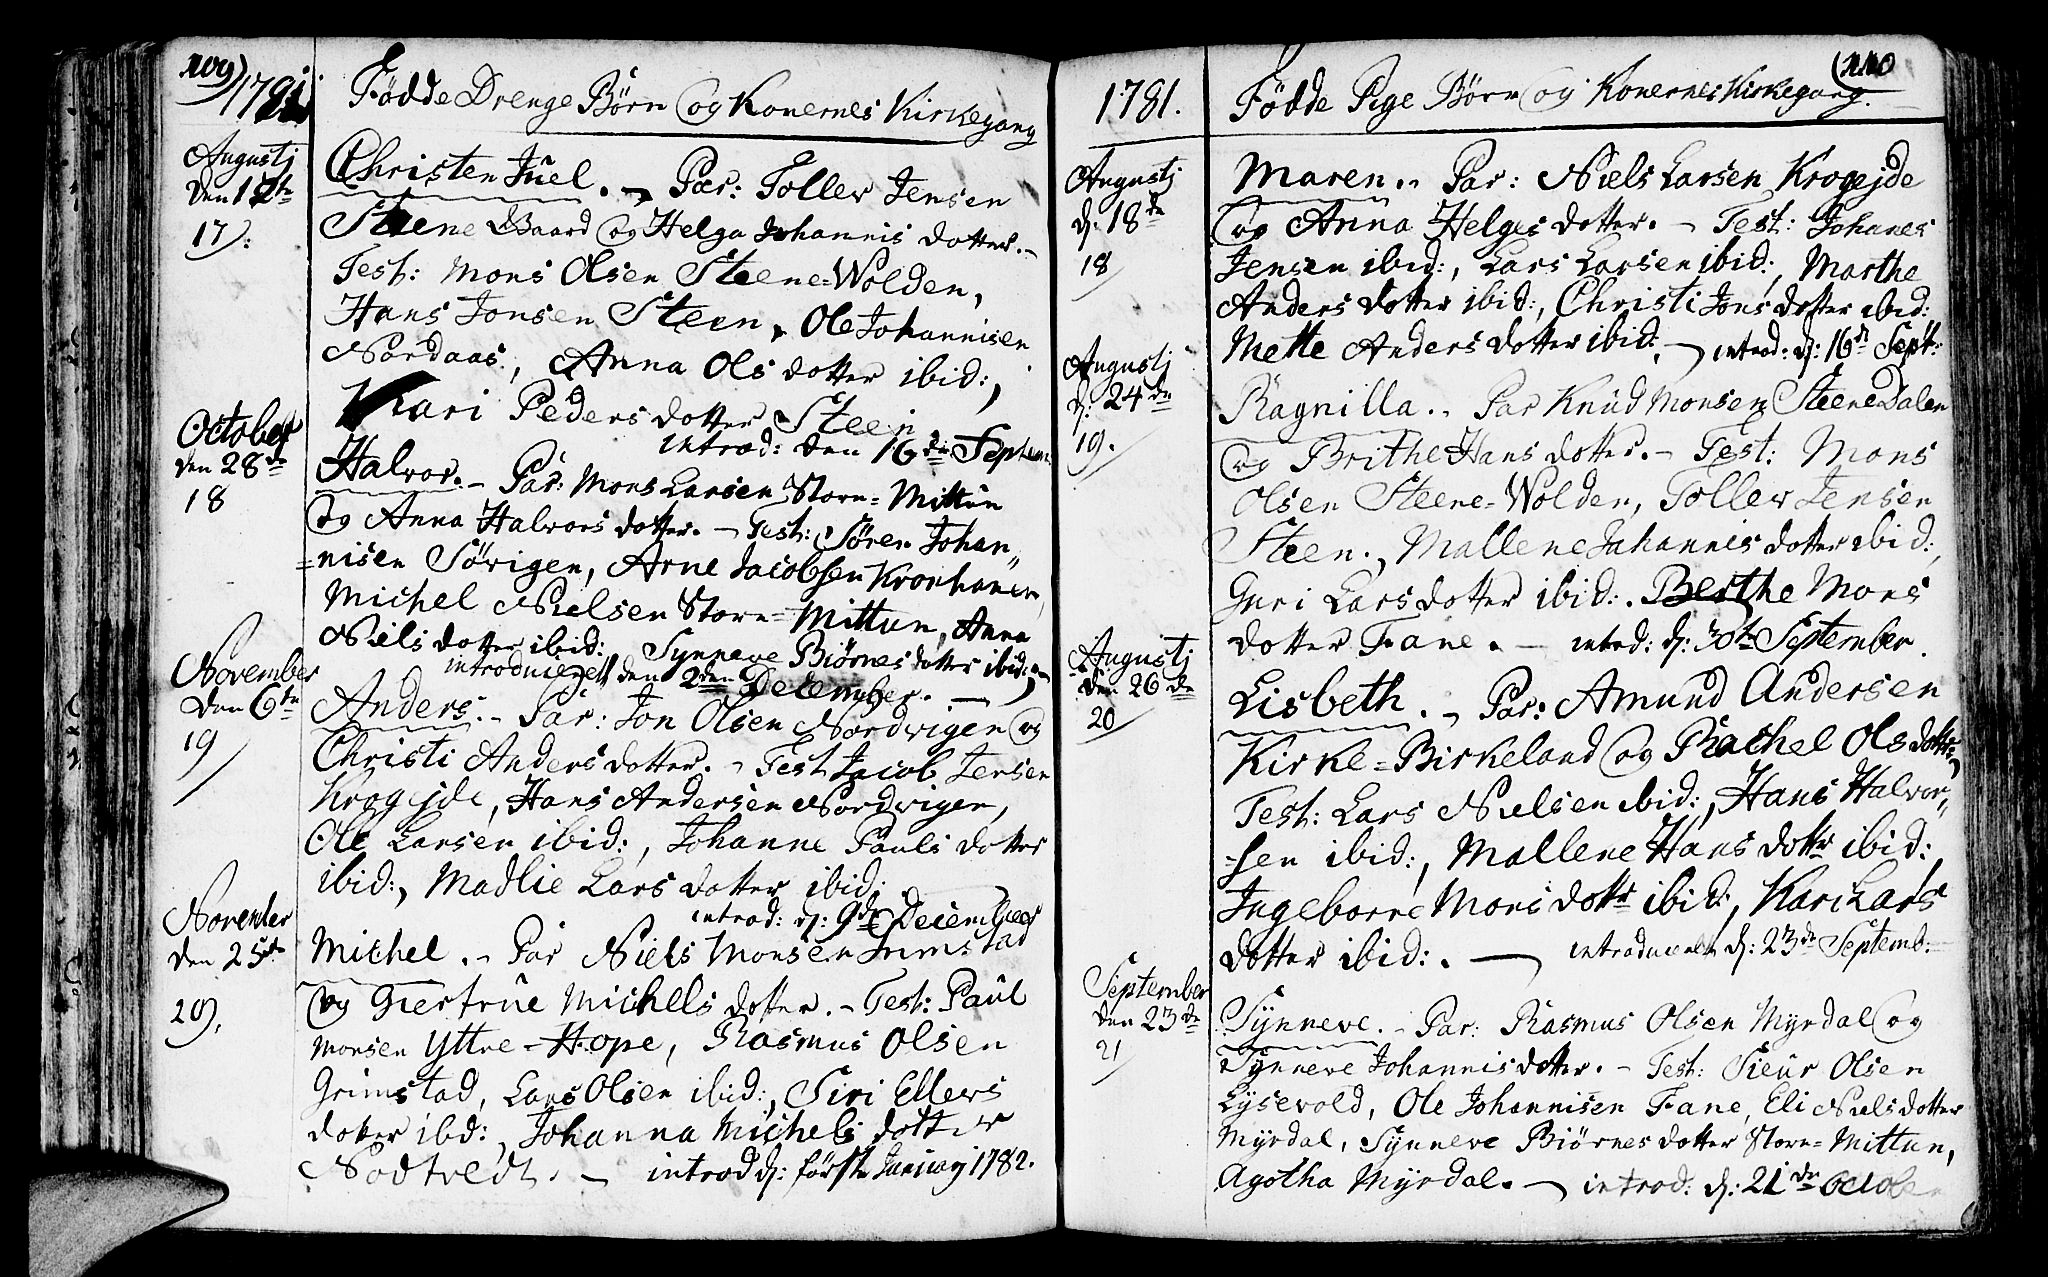 109)
1781.
Fødde Drenge Børn og Konernes Kirkegang
Augustj
den 12te
17).
Christen Juel. Par: Toller Jensen
Steene Gaard og Helga Johannis dotter.
Test: Mons Olsen Steene-Wolden,
Hans Jonsen Steen, Ole Johannisen
Nordaas, Anna Ols dotter ibid:,
Kari Peders dotter Steen
introd: den 16de Septem
October
den 28de
18
Halvor. - Par: Mons Larsen Store-Mittun
og Anna Halvors dotter. - Test: Søren Johan"
=nisen Sørigen, Arne Jacobsen Kronhanen,
Michel Nielsen Store-Mittun, Anna
Niels dotter ibid: Synneve Biørnes dotter ibid:
introduceret den 2den December.
November
den 6te
19
Anders. - Par: Jon Olsen Nordvigen og
Christi Anders dotter. - Test Jacob Jensen
Krogejde, Hans Andersen Nordvigen,
Ole Larsen ibid:, Johanne Pauls dotter
ibid:, Madlie Lars dotter ibid:
introd: d: 9de December
November
den 25de
20).
Michel. - Par Niels Monsen Grimstad
og Giertrue Michels dotter. - Test: Paul
Monsen Yttre-Hope, Rasmus Olsen
Grimstad, Lars Olsen ibid:, Siri Ellers
dotter ibd:, Johanna Michels dotter
Nodtvedt. - introd d: første Januarj 1782.
(110
1781.
Fødde Pige Børn og Konernes Kirkegang.
Augustj
d: 18de
18
Maren. Par: Niels Larsen Krogejde
og Anna Helges dotter. - Test: Johanes
Jensen ibid:, Lars Larsen ibid:, Marthe
Anders dotter ibid:, Christi Jons dotter ibid:
Mette Anders dotter ibid: - introd: d: 16de Sept:
Augustj
d: 24de
19.
Ragnilla. Par Knud Monsen Steene Dalen
og Brithe Hans dotter. - Test: Mons
Olsen Steene-Wolden, Toller Jensen
Steen., Mallene Johannis dotter ibid:,
Guri Lars dotter ibid:. Berthe Mons
dotter Fane. - introd: d: 30te September.
Augustj
den 26de
20
Lisbeth. - Par: Amund Andersen
Kirke-Birkeland og Rachel Ols dotter,
Test: Lars Nielsen ibid:, Hans Halvor"
=sen ibid:, Mallene Hans dottr ibid:,
Ingeborre Mons dottr ibid:, Kari Lars
dotter ibid:. - introduceret d: 23de Septemb:
September
den 23de
21
Synneve. - Par: Rasmus Olsen Myrdal og
Synneve Johannis dotter. - Test: Sieur Olsen
Lysevold, Ole Johannisen Fane, Eli Niels dotter
Myrdal, Synneve Biørnes dotter Store-Mittun,
Agotha Myrdal. - introd: d: 21de October